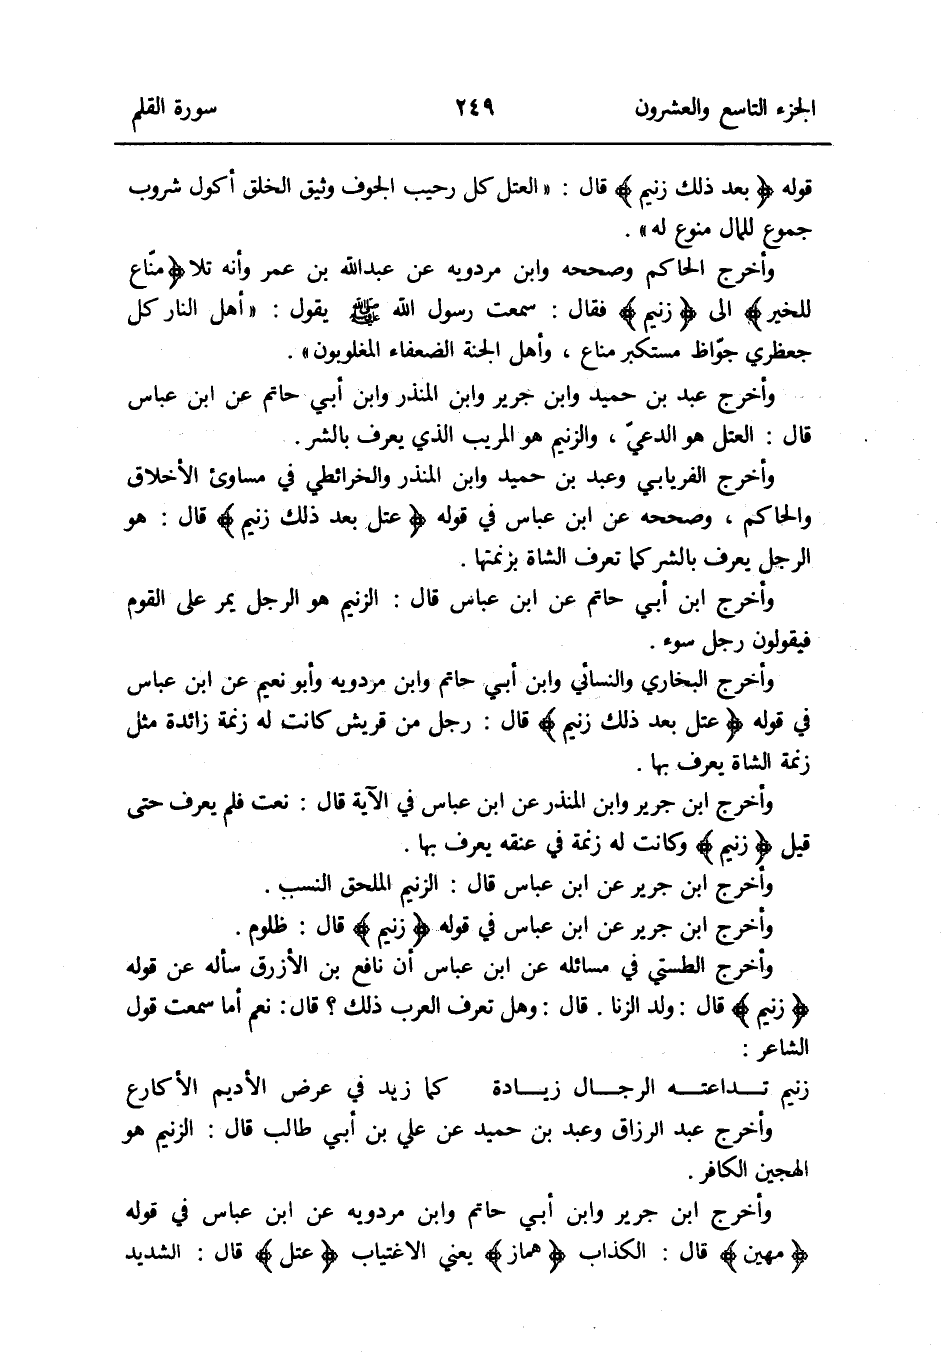 الجزء التاسع والعشرون ٢٤٩ سورة القلم
قوله ﴿ بعد ذلك زنيم ﴾ قال : « العتل كل رحيب الجوف وثيق الخلق أكول شروب
جموع للمال منوع له » .
وأخرج الحاكم وصححه وابن مردويه عن عبدالله بن عمر وأنه تلا ﴿ منّاع
للخير ﴾ الى ﴿ زنيم ﴾ فقال : سمعت رسول الله ﷺ يقول : « أهل النار كل
جعظري جوّاظ مستكبر مناع ، وأهل الجنة الضعفاء المغلوبون » .
وأخرج عبد بن حميد وابن جرير وابن المنذر وابن أبي حاتم عن ابن عباس
قال : العتل هو الدعيّ ، والزنيم هو المريب الذي يعرف بالشر .
وأخرج الفريابي وعبد بن حميد وابن المنذر والخرائطي في مساوئ الأخلاق
والحاكم ، وصححه عن ابن عباس في قوله ﴿ عتل بعد ذلك زنيم ﴾ قال : هو
الرجل يعرف بالشر كما تعرف الشاة بزنمتها .
وأخرج ابن أبي حاتم عن ابن عباس قال : الزنيم هو الرجل يمر على القوم
فيقولون رجل سوء .
وأخرج البخاري والنسائي وابن أبي حاتم وابن مردويه وأبو نعيم عن ابن عباس
في قوله ﴿ عتل بعد ذلك زنيم ﴾ قال : رجل من قريش كانت له زنمة زائدة مثل
زنمة الشاة يعرف بها .
وأخرج ابن جرير وابن المنذر عن ابن عباس في الآية قال : نعت فلم يعرف حتى
قيل ﴿ زنيم ﴾ وكانت له زنمة في عنقه يعرف بها .
وأخرج ابن جرير عن ابن عباس قال : الزنيم الملحق النسب .
وأخرج ابن جرير عن ابن عباس في قوله ﴿ زنيم ﴾ قال : ظلوم .
وأخرج الطستي في مسائله عن ابن عباس أن نافع بن الأزرق سأله عن قوله
﴿ زنيم ﴾ قال : ولد الزنا . قال : وهل تعرف العرب ذلك ؟ قال : نعم أما سمعت قول
الشاعر :
زنيم تـداعتـه الرجـال زيـادة كما زيد في عرض الأديم الأكارع
وأخرج عبد الرزاق وعبد بن حميد عن علي بن أبي طالب قال : الزنيم هو
الهجين الكافر .
وأخرج ابن جرير وابن أبي حاتم وابن مردويه عن ابن عباس في قوله
﴿ مهين ﴾ قال : الكذاب ﴿ هماز ﴾ يعني الاغتياب ﴿ عتل ﴾ قال : الشديد